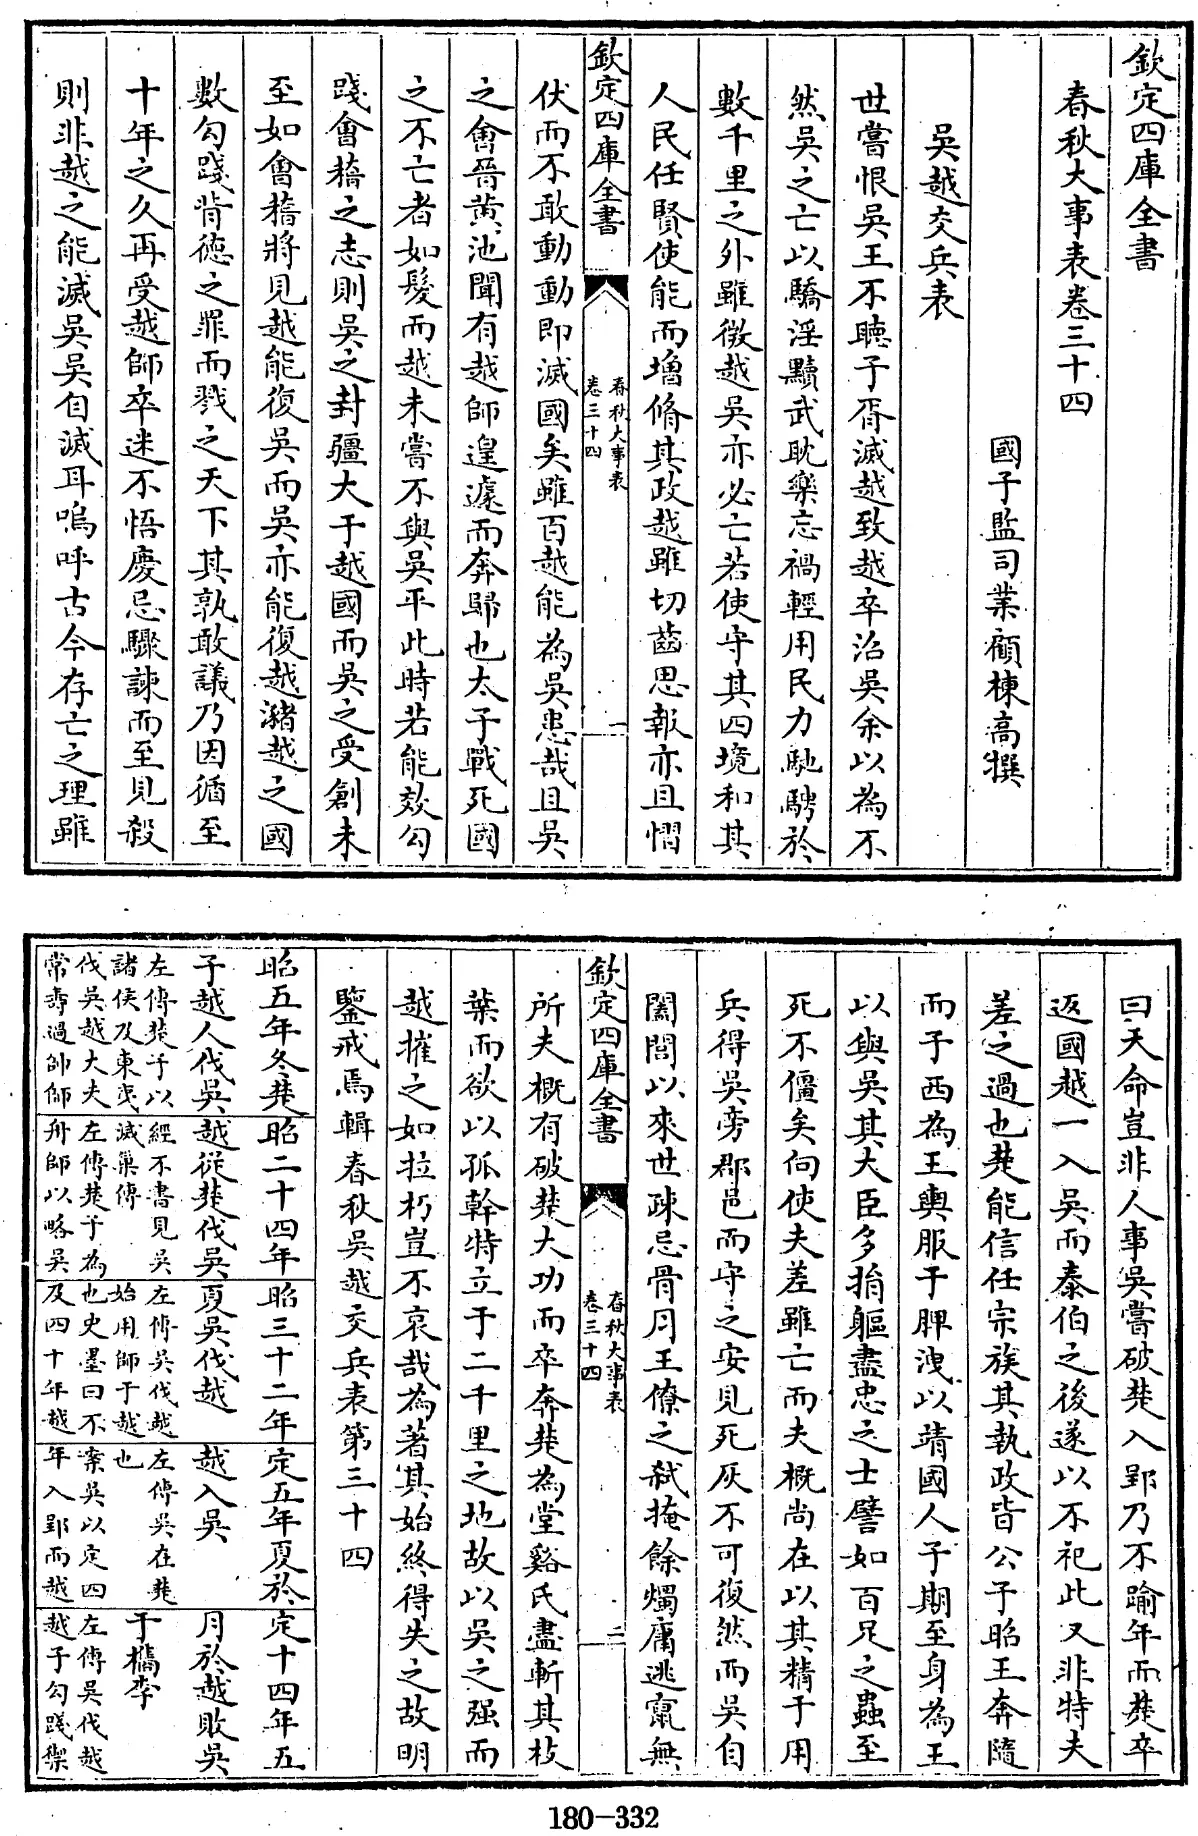 欽定四庫全書
春秋大事表卷三十四
國子監司業顧棟高撰
吳越交兵表
世嘗恨吳王不聽子胥滅越致越卒沼吳余以為不
然吳之亡以驕淫黷武耽樂忘禍輕用民力馳騁於
數千里之外雖微越吳亦必亡若使守其四境和其
人民任賢使能而增脩其政越雖切齒思報亦且慴
欽定四庫全書
春秋大事表
卷三十四
一
伏而不敢動動即滅國矣雖百越能為吳患哉且吳
之會晉黃池聞有越師遑遽而奔歸也太子戰死國
之不亡者如髮而越未嘗不與吳平此時若能效勾
踐會稽之志則吳之封疆大于越國而吳之受創未
至如會稽將見越能復吳而吳亦能復越瀦越之國
數勾踐背德之罪而戮之天下其孰敢議乃因循至
十年之久再受越師卒迷不悟慶忌驟諫而至見殺
則非越之能滅吳吳自滅耳嗚呼古今存亡之理雖
曰天命豈非人事吳嘗破楚入郢乃不踰年而楚卒
返國越一入吳而泰伯之後遂以不祀此又非特夫
差之過也楚能信任宗族其執政皆公子昭王奔隨
而子西為王輿服于脾洩以靖國人子期至身為王
以與吳其大臣多捐軀盡忠之士譬如百足之蟲至
死不僵矣向使夫差雖亡而夫概尚在以其精于用
兵得吳旁郡邑而守之安見死灰不可復然而吳自
闔閭以來世疎忌骨肉王僚之弒掩餘燭庸逃竄無
欽定四庫全書
春秋大事表
卷三十四
二
所夫概有破楚大功而卒奔楚為堂谿氏盡斬其枝
葉而欲以孤幹特立于二千里之地故以吳之强而
越摧之如拉朽豈不哀哉為著其始終得失之故明
鑒戒焉輯春秋吳越交兵表第三十四
昭五年冬楚
子越人伐吳
左傳楚子以
諸侯及東夷
伐吳越大夫
常壽過帥師
昭二十四年
越從楚伐吳
經不書見吳
滅巢傳
左傳楚子為
舟師以略吳
昭三十二年
夏吳伐越
左傳吳伐越
始用師于越
也史墨曰不
及四十年越
定五年夏於
越入吳
左傳吳在楚
也
案吳以定四
年入郢而越
定十四年五
月於越敗吳
于檇李
左傳吳伐越
越子勾踐禦
180-332